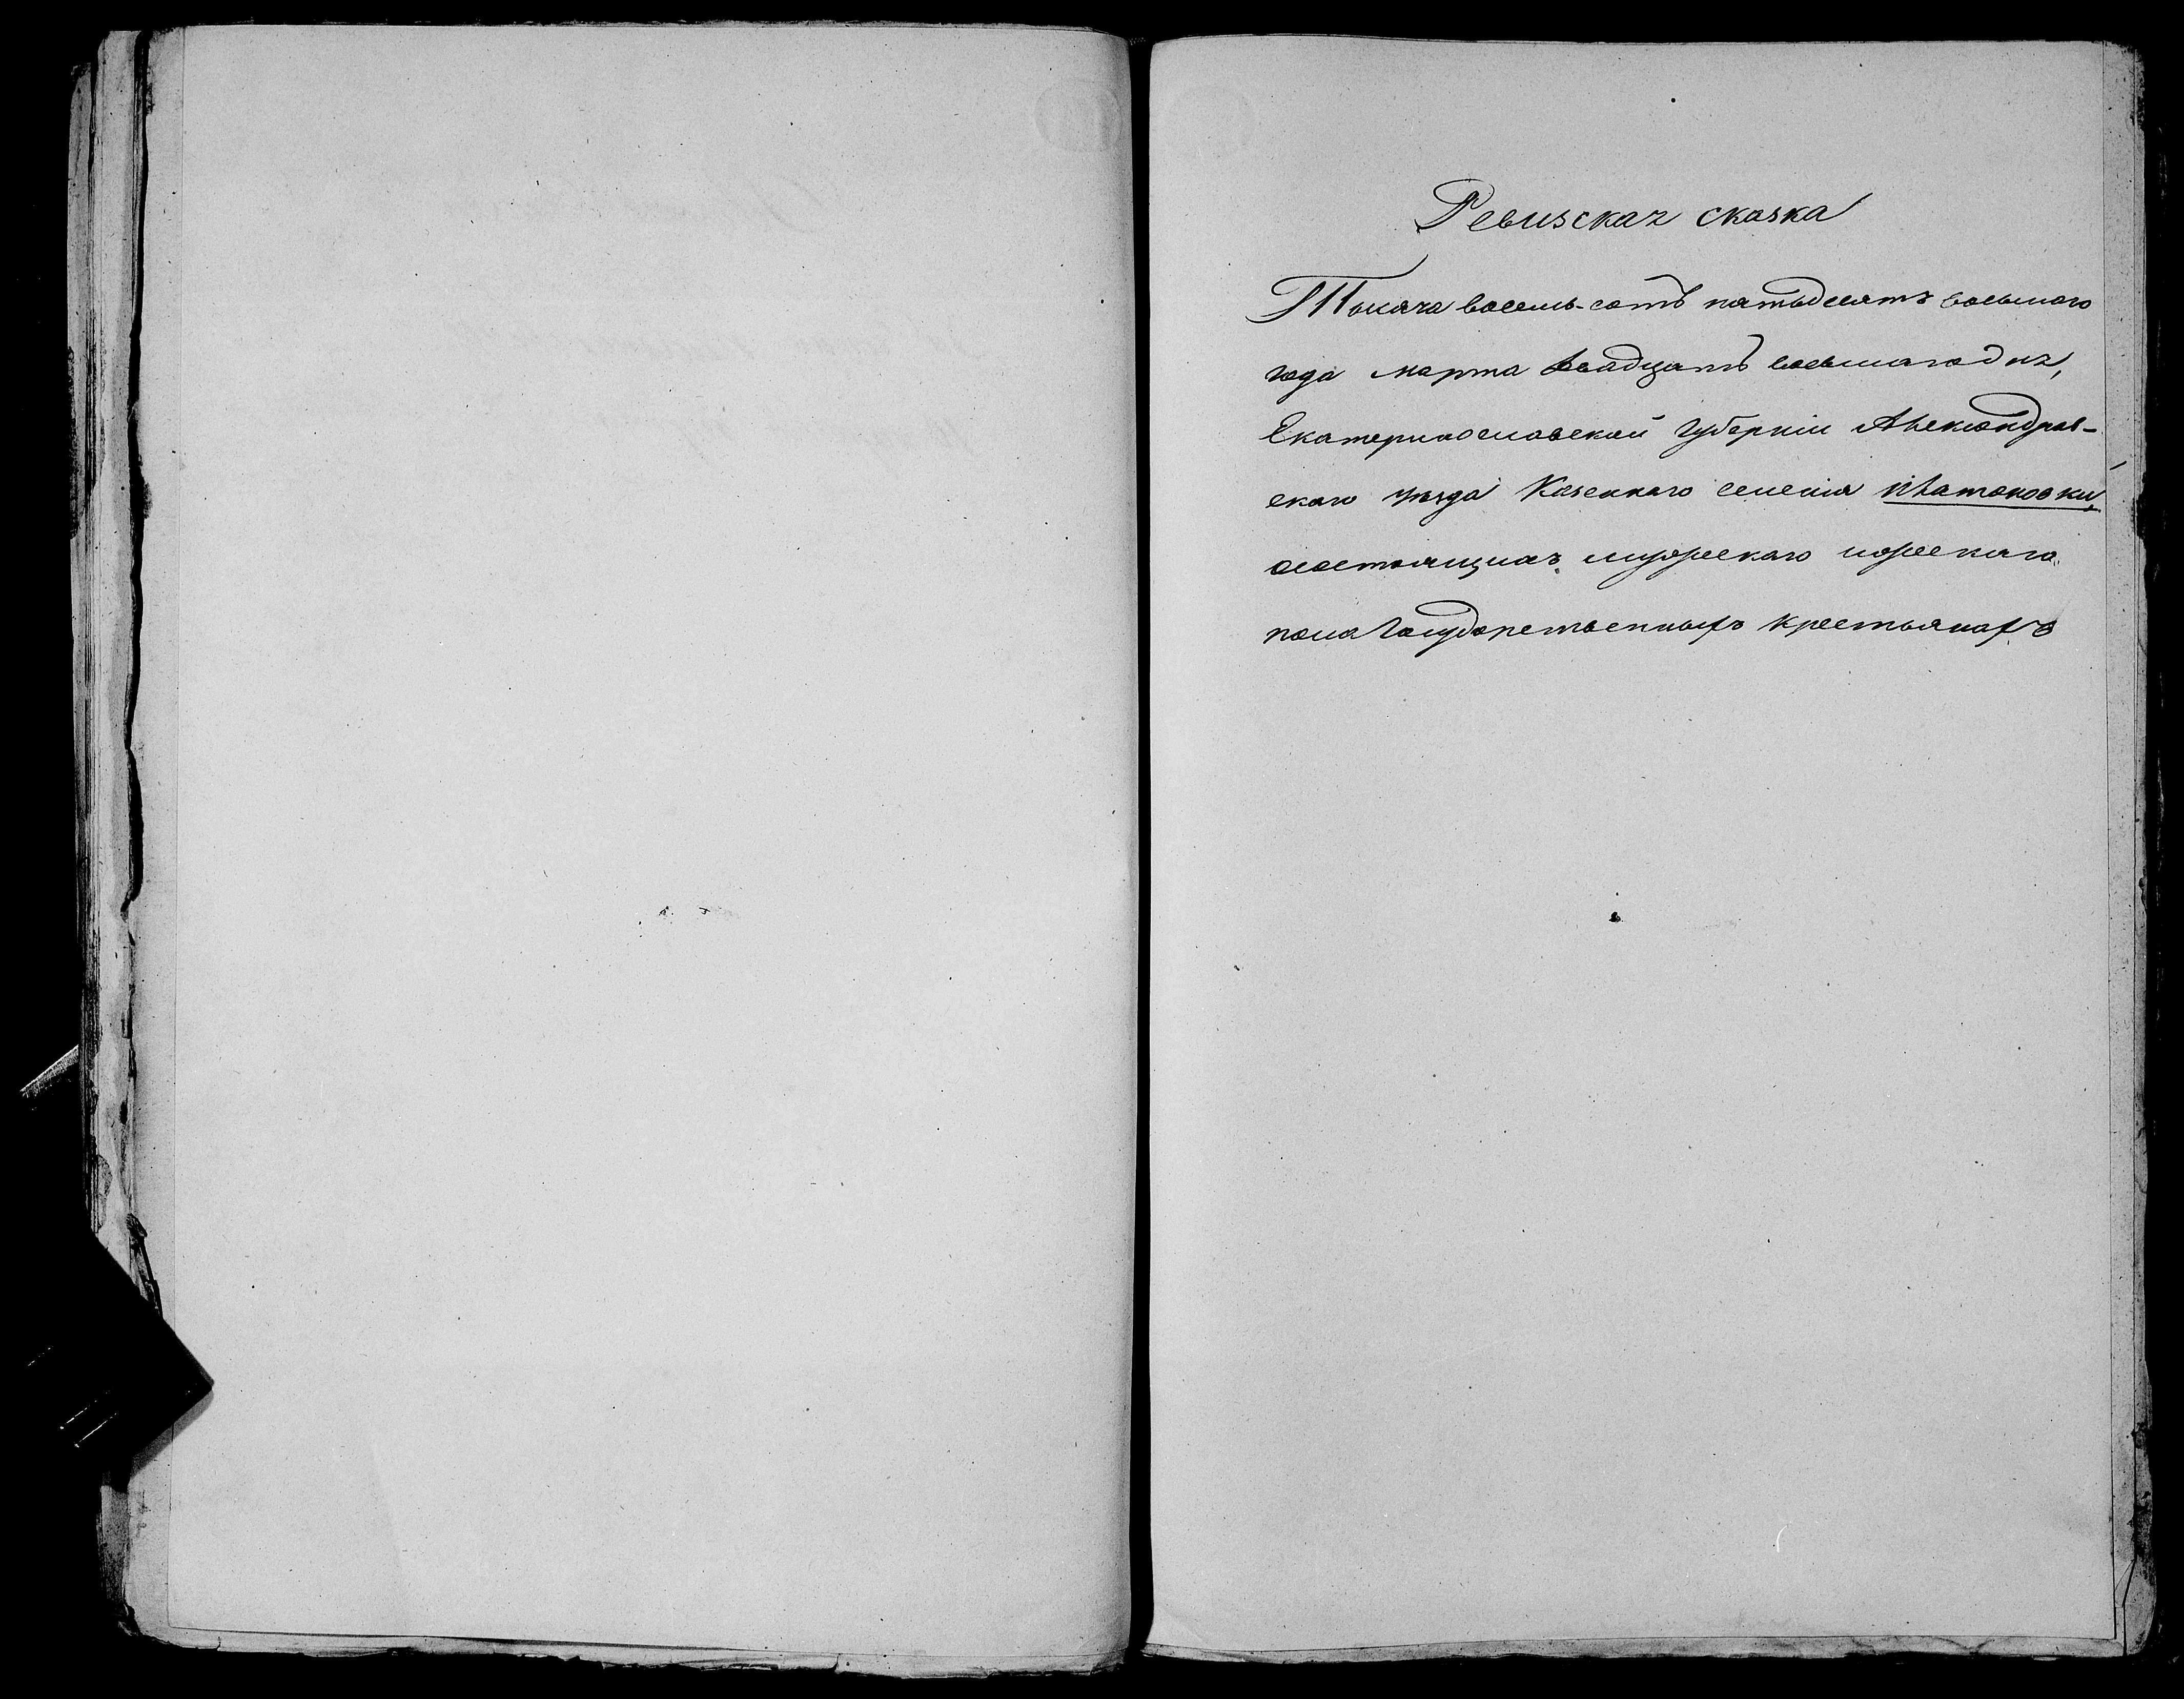 Ревизская сказка
Тысяча восемь-сотъ пятьдесятъ восьмаго
года марта двадцать восьмаго дня,
Екатеринославской Губерніи Александров-
скаго уѣзда Казеннаго селенія Платоновки,
о состоящихъ мужескаго и женскаго
пола Государственныхъ крестьянахъ